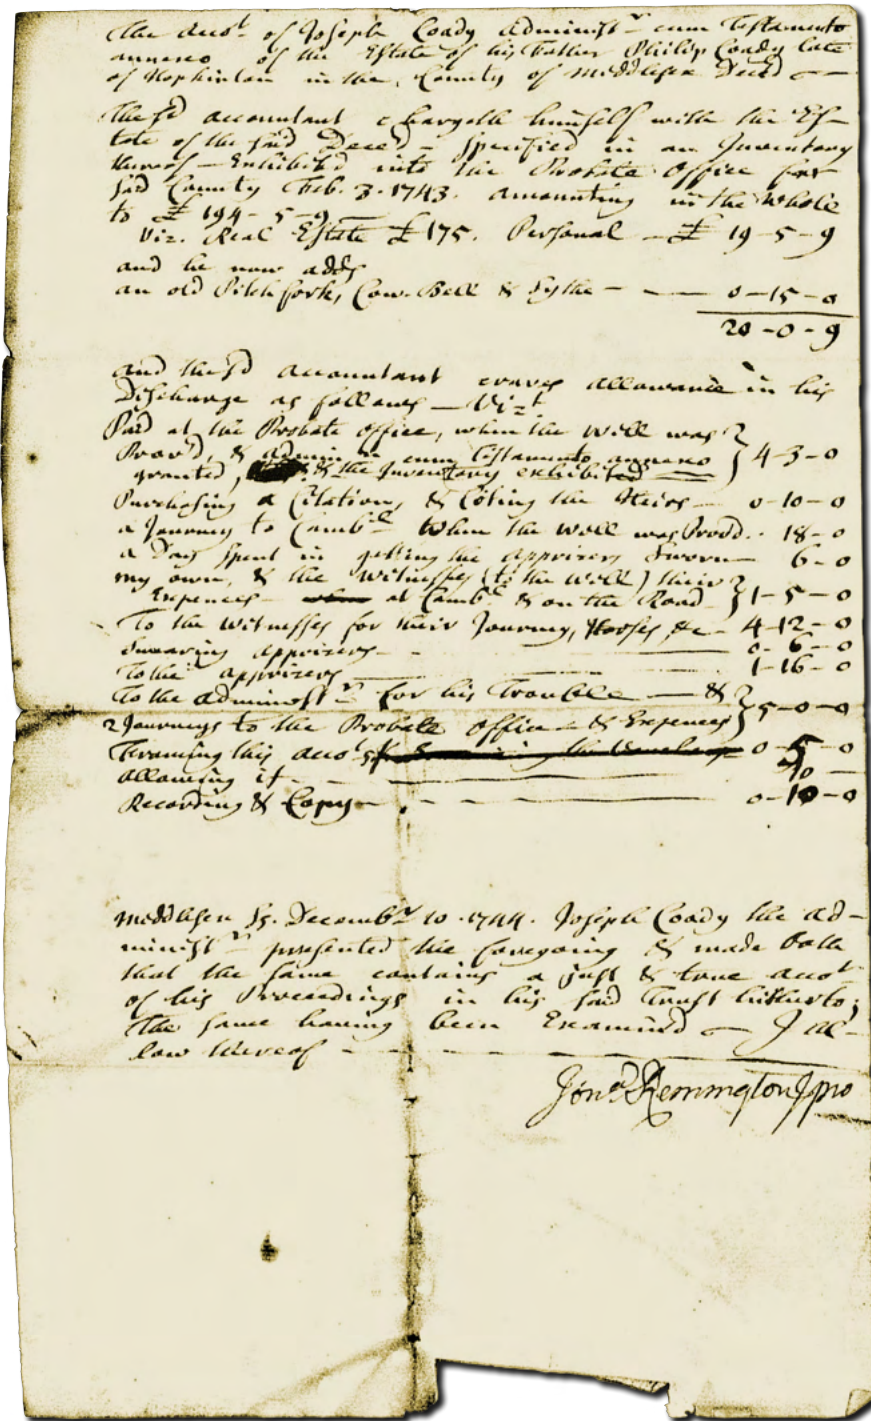 The Acco.t of Joseph Coady Administ.r cum Testamento
annexo of the Estate of his Father Philip Coady late
of Hopkinton in the County of Middlesex Deced —
The s.d accountant chargeth himself with the Es-
tate of the said Deced — specified in an Inventory
thereof — Exhibited into the Probate Office for
said County Feb. 3. 1743. amounting in the whole
to £ 194-5-9
Viz. Real Estate £175. Personal — £ 19-5-9
and he now adds
an old Pitchfork, Cow-Bell & Sythe — — 0-15-0
20-0-9
And the s.d accountant craves allowance in his
Discharge as follows — Viz.t
Paid at the Probate Office, when the Will was
Prov'd, & admin.n cum Testamento annexo } 4-3-0
granted, & the Inventory exhibited
Purchasing a Citation, & Citing the Heirs — 0-10-0
a Journey to Camb.e When the Will was Provd.. 18-0
a Day Spent in getting the apprizers Sworn — 6-0
my own, & the Witnesses (to the Will) their
Expences — at Camb.e & on the Road } 1-5-0
To the Witnesses for their Journey, Horses, &c — 4-12-0
Swearing apprizers — 0-6-0
To the apprizers — 1-16-0
To the Administ.r for his Trouble — &
2 Journeys to the Probate Office — & Expences } 5-0-0
Framing this Acco.t 0-5-0
allowing it — 10 —
Recording & Copy — 0-10-0
Middlesex ss. Decemb.r 10. 1744. Joseph Coady the Ad-
minist.r presented the foregoing & made Oath
that the same contains a just & true Acco.t
of his Proceedings in his said Trust hitherto;
The same having been Examined — I al-
low thereof —
Jon.a Remington J pro